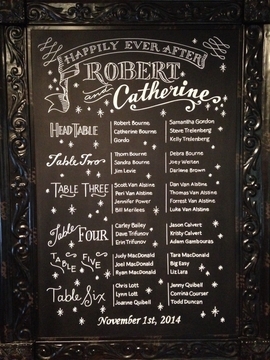 HAPPILY EVER AFTER
ROBERT
and Catherine
HEAD TABLE
Robert Bourne
Catherine Bourne
Gordo
Samantha Gordon
Steve Trelenberg
Kelly Trelenberg
Table Two
Thom Bourne
Sandra Bourne
Jim Levie
Debra Bourne
Joey Weiten
Darlene Brown
TABLE THREE
Scott Van Alstine
Peri Van Alstine
Jennifer Power
Bill Menlees
Dan Van Alstine
Thomas Van Alstine
Forrest Van Alstine
Luke Van Alstine
Table FOUR
Carley Bailey
Dave Trifunov
Erin Trifunov
Jason Calvert
Kristy Calvert
Adam Gambouras
TABLE FIVE
Judy MacDonald
Joel MacDonald
Ryan MacDonald
Tara MacDonald
Big Easy
Liz Lara
Table Six
Chris Lott
Lynn Lott
Joanne Quibell
Jenny Quibell
Corrina Courser
Todd Duncan
November 1st, 2014